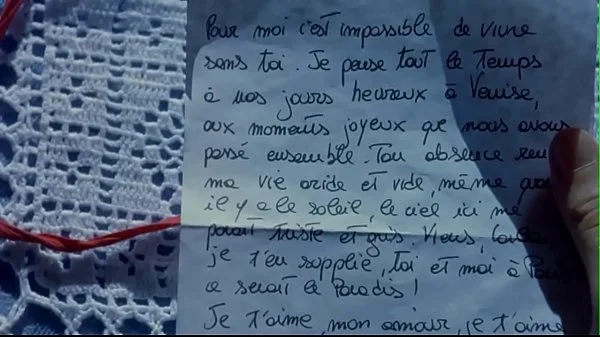 Pour moi c'est impossible de vivre
sans toi. Je pense tout le temps
à nos jours heureux à Venise,
aux moments joyeux que nous avons
passé ensemble. Ton absence
ma vie aride et vide, même
il y a le soleil, le ciel ici me
paraît triste et gris. Viens,
je t'en supplie, toi et moi à
ce serait le Paradis!
Je t'aime, mon amour, je t'aime